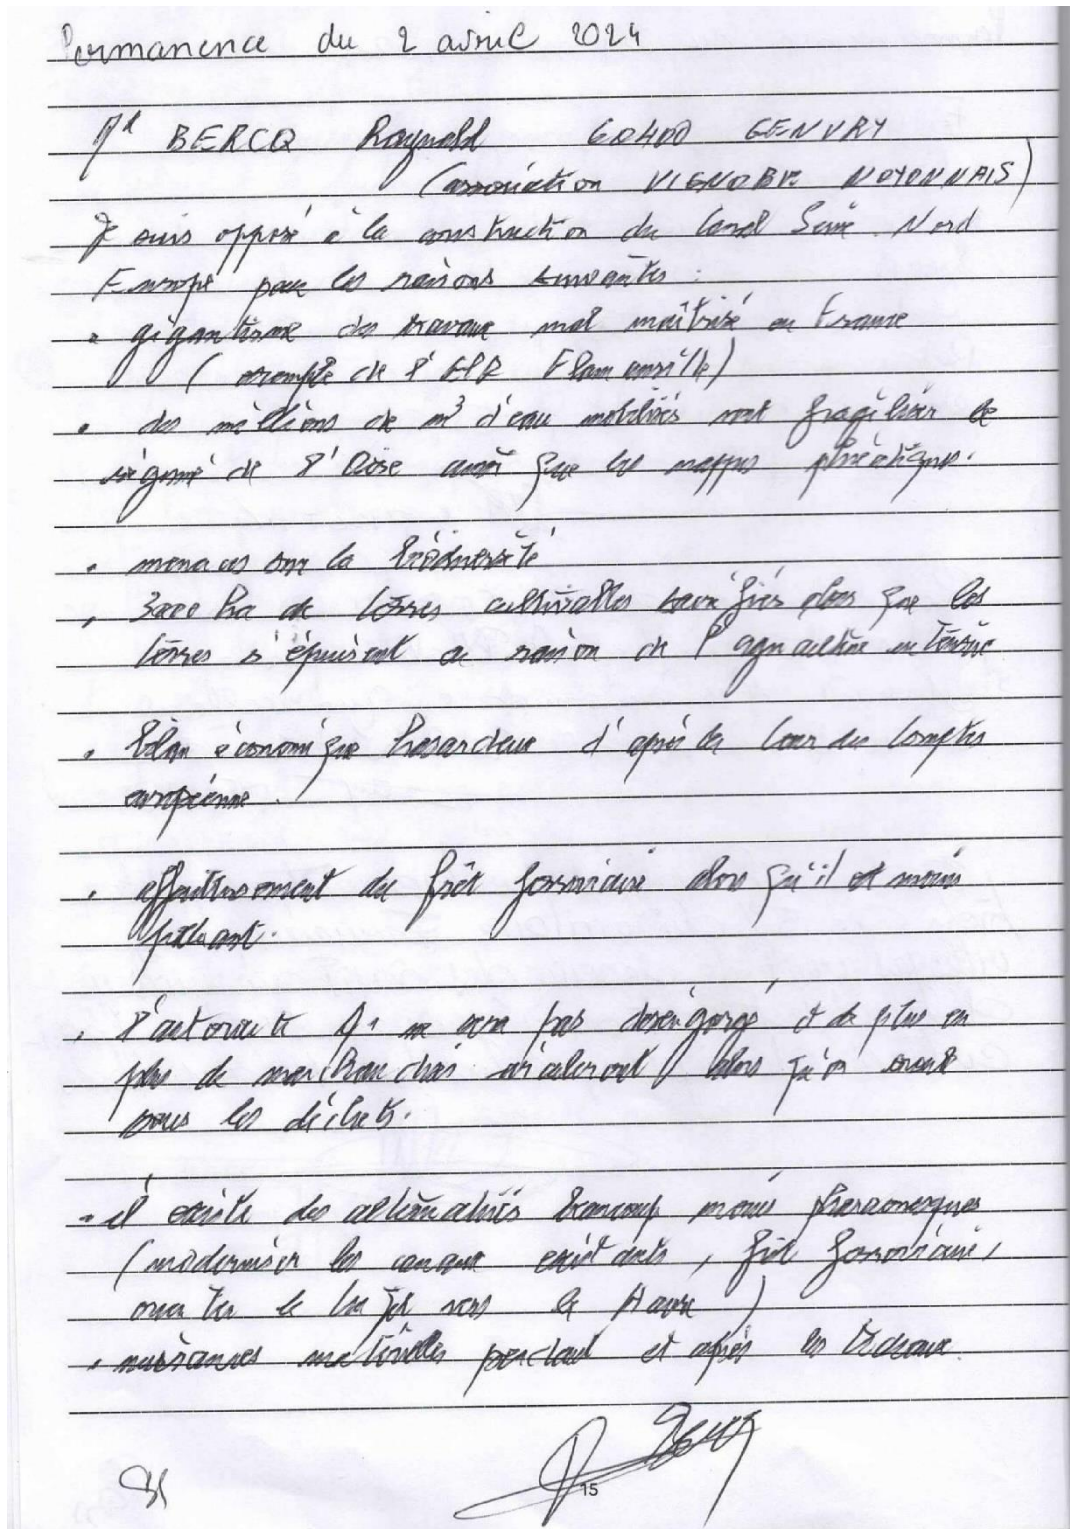 Permanence du 2 avril 2024
Mr BERCQ Raynald 60400 GENVRY
(association VIGNOBLE NOYONNAIS)
Je suis opposé à la construction du Canal Seine Nord
Europe pour les raisons suivantes :
- gigantisme des travaux mal maîtrisé en France
(exemple de l'EPR Flamanville)
- des millions de m3 d'eau mobilisés vont fragiliser le
régime de l'Oise ainsi que les nappes phréatiques.
- menaces sur la biodiversité
- 3000 ha de terres cultivables sacrifiés alors que les
terres s'épuisent en raison de l'agriculture intensive
- bilan économique hasardeux d'après la Cour des Comptes
européenne.
- affaiblissement du frêt ferroviaire alors qu'il est moins
polluant.
- l'autoroute A1 ne sera pas désengorgé et de plus en
plus de marchandises circuleront alors qu'on croule
sous les déchets.
- il existe des alternatives beaucoup moins pharaonesques
(moderniser les canaux existants, frêt ferroviaire,
le trafic vers le Havre)
- nuisances pendant et après les travaux.
15